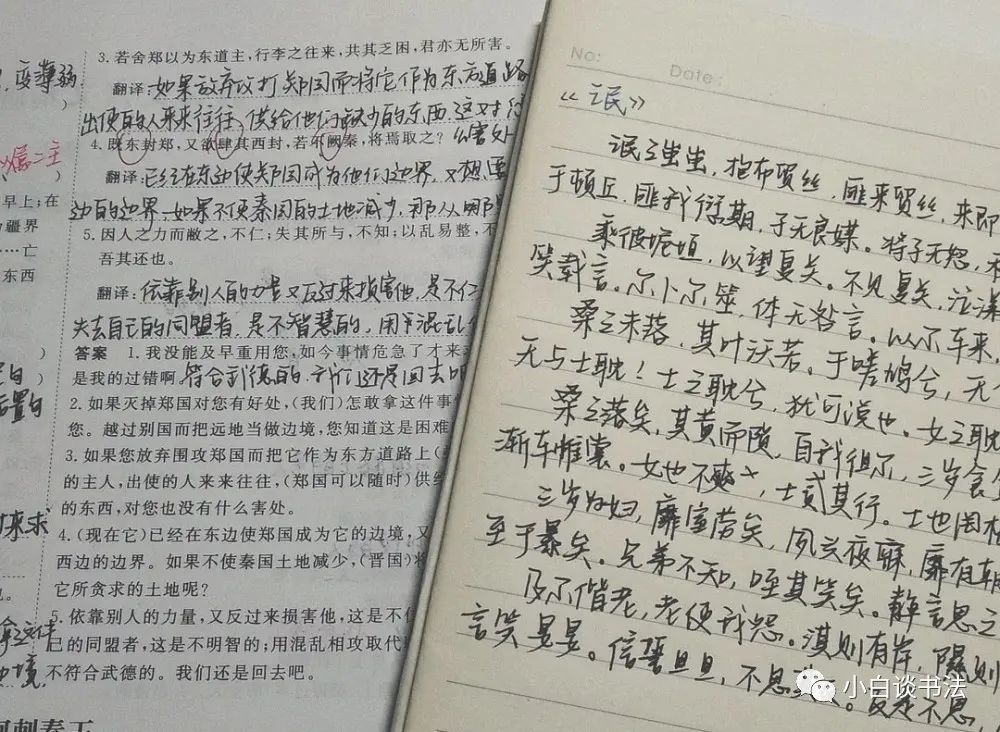 变薄弱
3.若舍郑以为东道主，行李之往来，共其乏困，君亦无所害。
翻译：如果放弃攻打郑国而将它作为东方道路
出使的人来来往往，供给他们缺少的东西，这对
4.既东封郑，又欲肆其西封，若不阙秦，将焉取之？
翻译：已经在东边使郑国成为他们边界，又想要
边的边界，如果不使秦国的土地减少，那从
早上；在
疆界
……亡
东西
5.因人之力而敝之，不仁；失其所与，不知；以乱易整，不
吾其还也。
翻译：依靠别人的力量又反过来损害他，是不仁
失去自己的同盟者，是不智慧的，用混乱
答案 1.我没能及早重用您，如今事情危急了才来
是我的过错啊
符合武德的，我们还是回去吧
2.如果灭掉郑国对您有好处，(我们)怎敢拿这件事
您。越过别国而把远地当做边境，您知道这是困难
3.如果您放弃围攻郑国而把它作为东方道路上(
的主人，出使的人来来往往，(郑国可以随时)供给
的东西，对您也没有什么害处。
来求
4.(现在它)已经在东边使郑国成为它的边境，又
西边的边界。如果不使秦国土地减少，(晋国)将
它所贪求的土地呢？
5.依靠别人的力量，又反过来损害他，这是不仁
己的同盟者，这是不明智的；用混乱相攻取代
不符合武德的。我们还是回去吧。
边境
No:
Date:
《氓》
氓之蚩蚩，抱布贸丝，匪来贸丝，来即
于顿丘，匪我愆期，子无良媒。将子无怒，
乘彼垝垣，以望复关。不见复关，泣涕
笑载言。尔卜尔筮，体无咎言。以尔车来，
桑之未落，其叶沃若。于嗟鸠兮，无
无与士耽！士之耽兮，犹可说也。女之耽
桑之落矣，其黄而陨，自我徂尔，三岁食
渐车帷裳。女也不爽，士贰其行。士也罔极
三岁为妇，靡室劳矣，夙兴夜寐，靡有朝
至于暴矣。兄弟不知，咥其笑矣。静言思之
及尔偕老，老使我怨。淇则有岸，隰则
言笑晏晏。信誓旦旦，不思
。反是不思，
小白谈书法